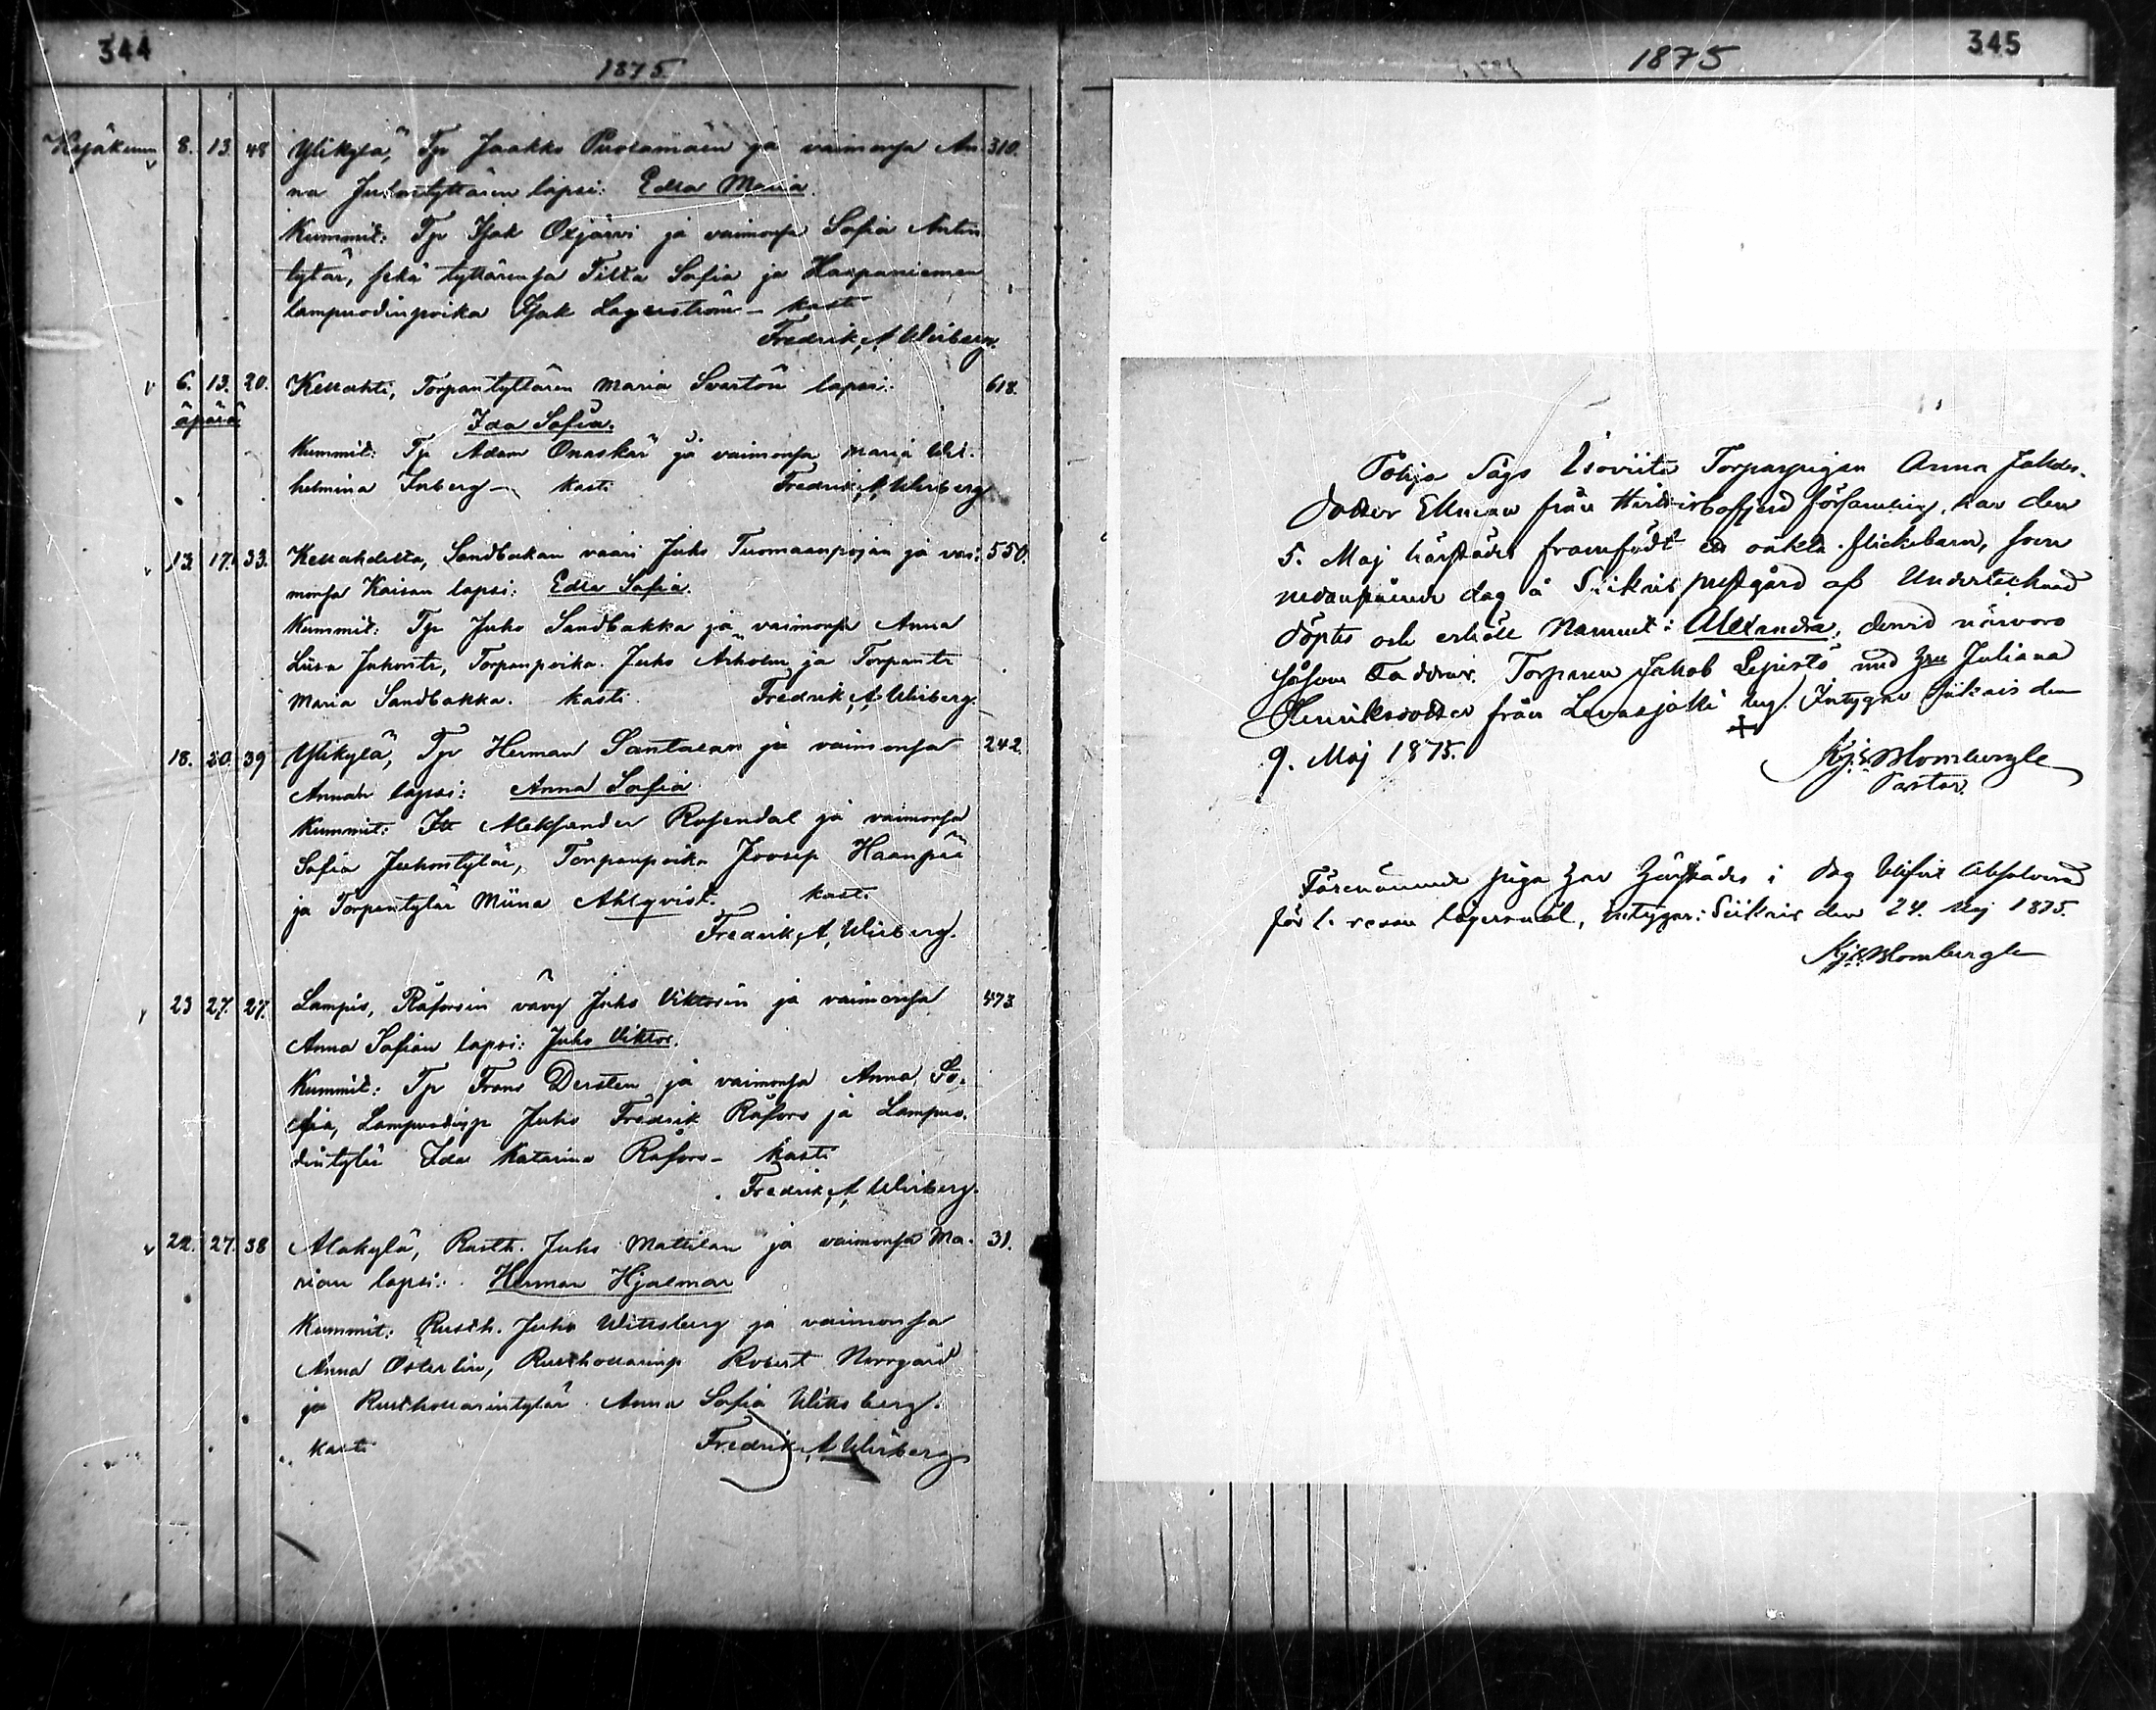 344
1875
8. 13. 48 Ylikylä, Tp Jaakko ja vaimonsa An- 310.
na Juhontyttären lapsi: Edla Maria.
Kummit: Tp Isak Oxjärvi ja vaimonsa Sofia Antin
tytär, sekä tyttärensä Sofia ja Haapaniemen
lampuodinpoika Isak Lagerström – kasti
Fredrik A. Wirberg.
v 6. 13. 20. Kellahti, Torpantyttären Maria lapsi: 618.
äpärä Ida Sofia.
Kummit: Tp Adam Onaskär ja vaimonsa Maria Wil-
helmina Inberg – kasti Fredrik A. Wirberg
v 13. 17. 33. Kellahdelta, Sandbakan vaari Juho Tuomaanpojan ja vai- 550.
monsa Kaisan lapsi: Edla Sofia.
Kummit: Tp Juho Sandbakka ja vaimonsa Anna
Liisa Juhontr, Torpanpoika Juho Arholm ja Torpantr
Maria Sandbakka. kasti Fredrik A. Wirberg.
18. 20. 39 Ylikylä, Tp Herman Santalan ja vaimonsa 242.
Annan lapsi: Anna Sofia.
Kummit: Aleksander Rosendal ja vaimonsa
Sofia Juhontytär, Torpanpoika Joosep Haanpää
ja Torpantytär Miina Ahlqvist. kasti
Fredrik A. Wirberg.
v 23 27. 27. Lampis, Råforsin vävy Juho Viktorin ja vaimonsa 473
Anna Sofian lapsi: Juho Viktor.
Kummit: Tp Frans Dersten ja vaimonsa Anna So-
fia, Lampuodinp Juho Fredrik Råfors ja Lampuo-
dintytär Ida Katarina Råfors – kasti
Fredrik A. Wirberg.
v 22. 27. 38 Alakylä, Rusth. Juho Mattilan ja vaimonsa Ma- 31.
rian lapsi: Herman Hjalmar
Kummit: Rusth. Juho Wittsberg ja vaimonsa
Anna Österlin, Rusthollarinp Robert Norrgård
ja Rusthollarintytär Anna Sofia Wittsberg.
kasti Fredrik A. Wirberg
1875
345
Isoviita Torparpigan Anna
dotter Ekman från församling, har den
5. Maj härstädes framfödt ett oäkta flickebarn, som
nedanstående dag å Siikais prestgård af Undertecknad
döptes och erhöll Namnet: Alexandra, dervid närvoro
såsom Faddrar: Torparen Jakob Lepistö med Juliana
Henriksdotter från Leväsjoki by. Intygar Siikais den
9. Maj 1875.
Pastor.
Förenämnde piga har härstädes i dag blifvit Absolverad
för 1. resan lägersmål, Intygar: Siikais den 24. Maj 1875.